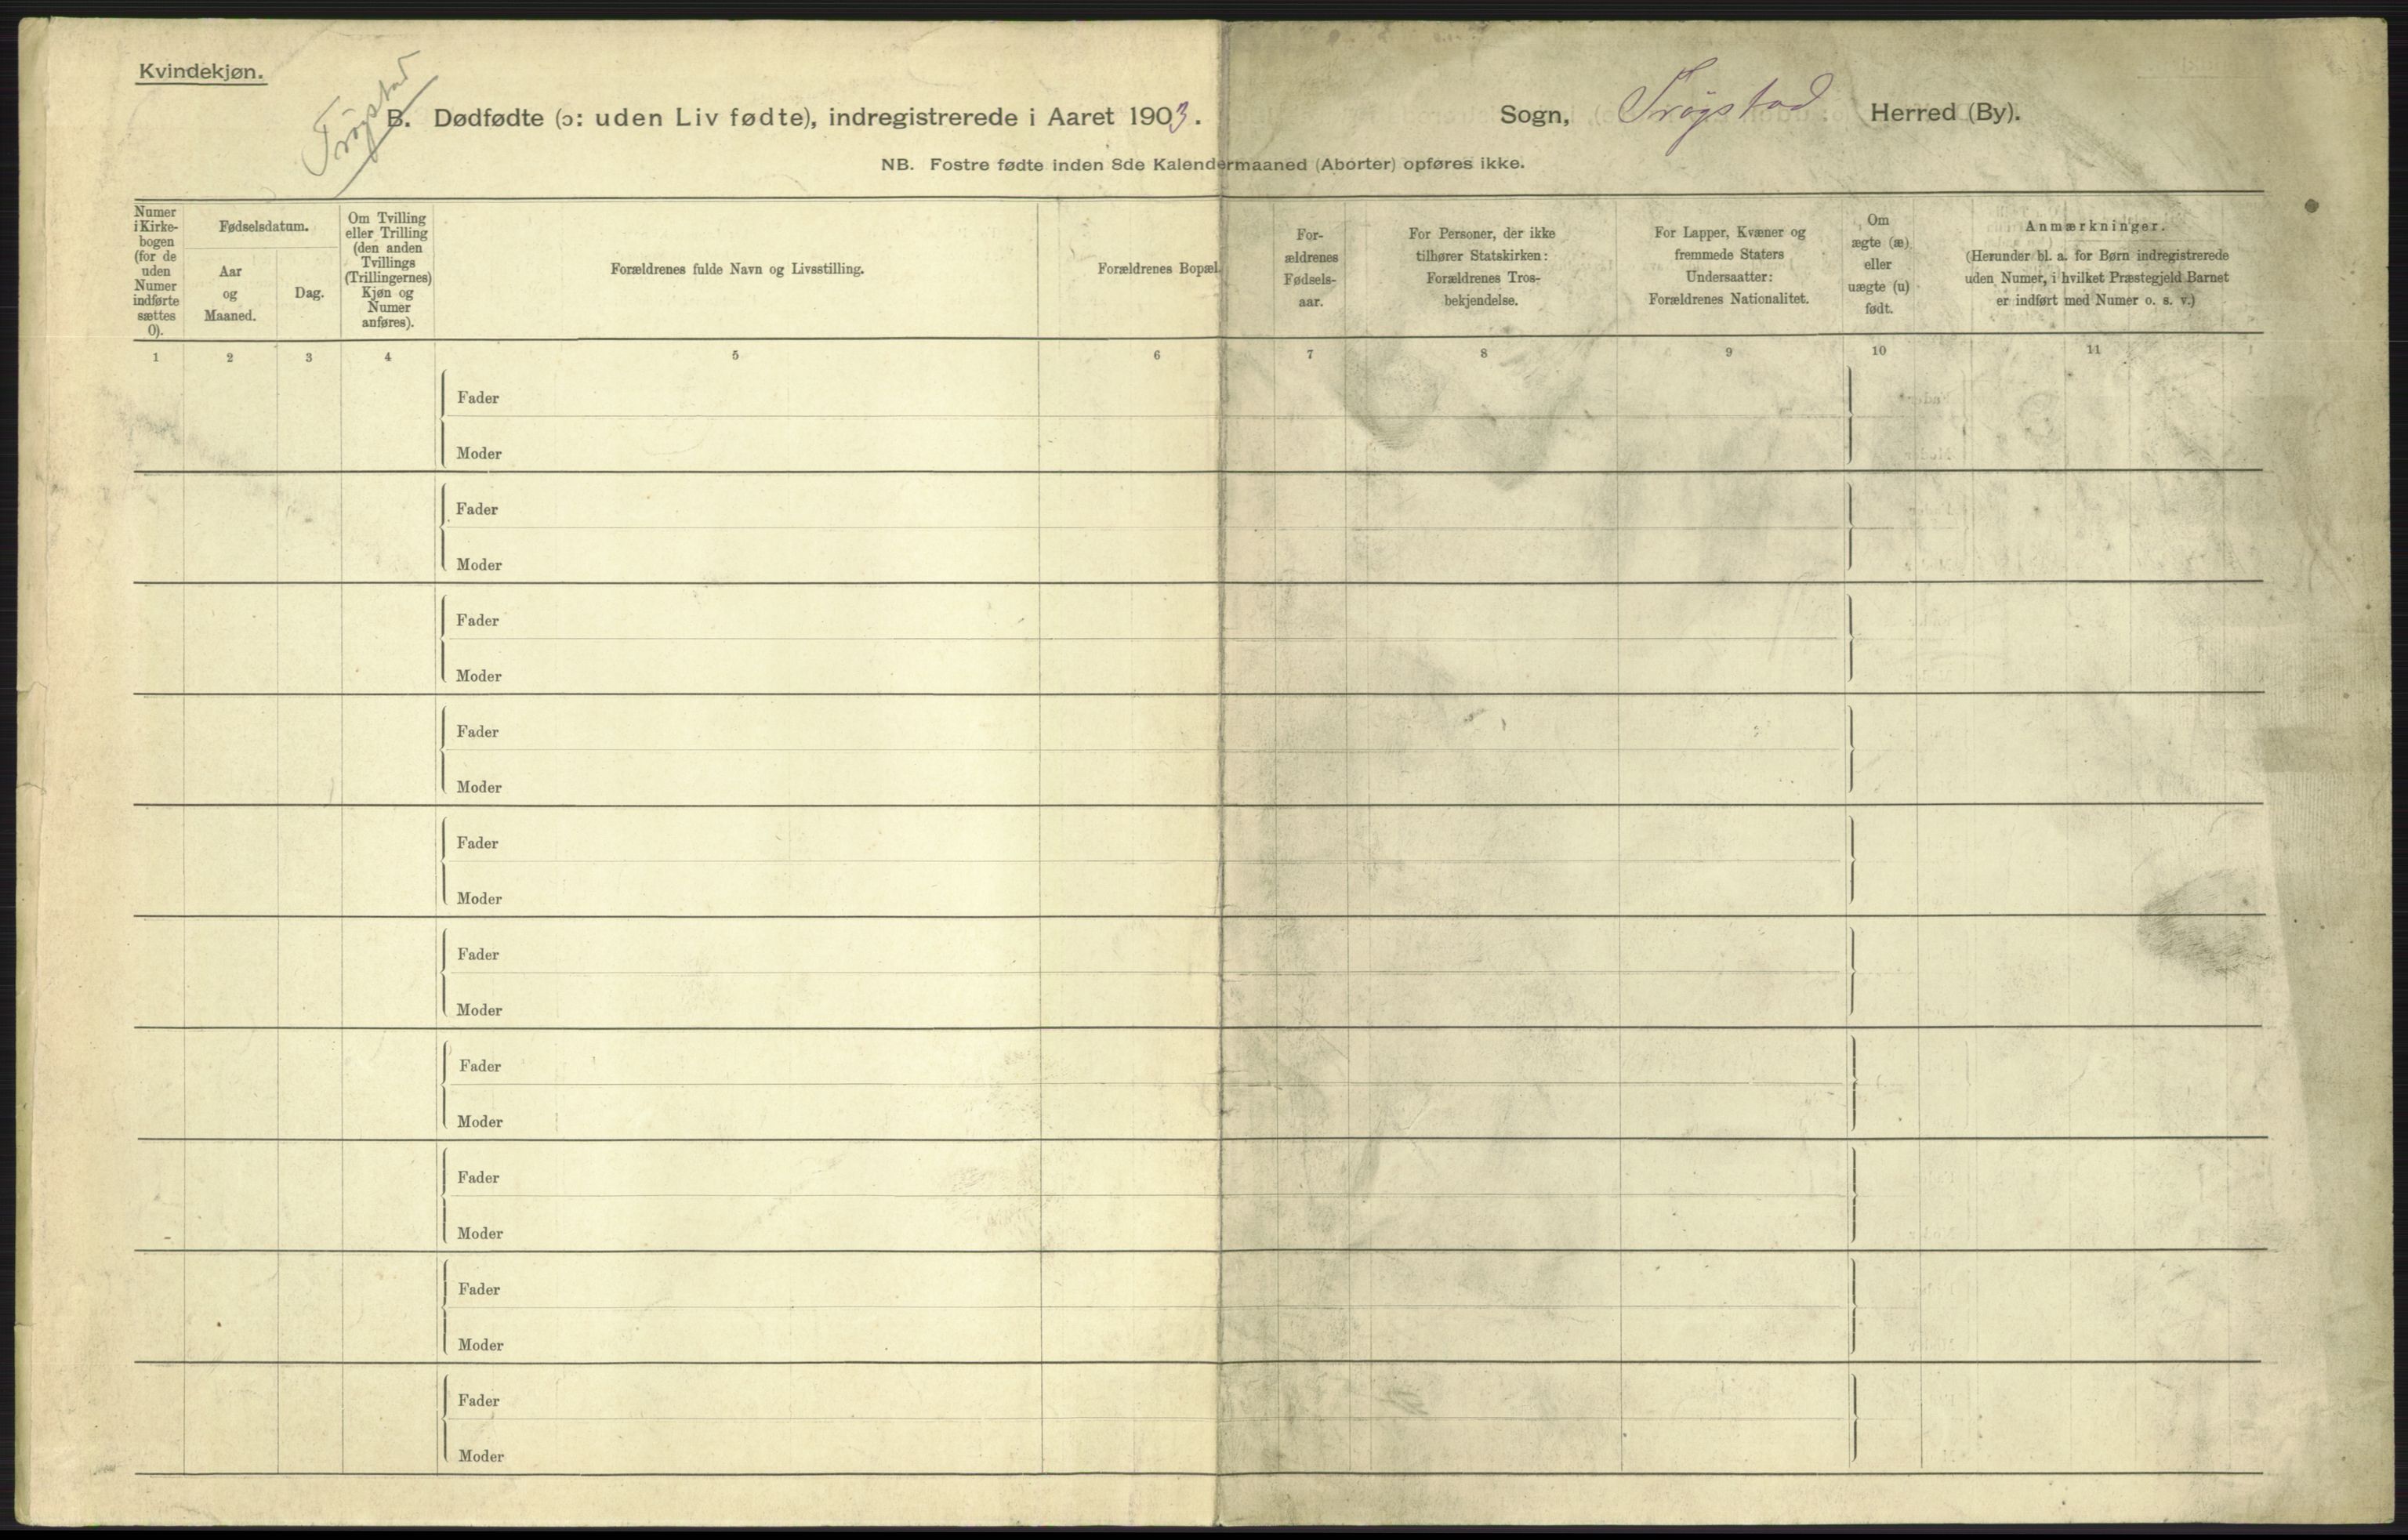 Kvindekjøn.
Trøgstad
B. Dødfødte (ɔ: uden Liv fødte), indregistrerede i Aaret 1903.
Sogn, Trøgstad Herred (By).
NB. Fostre fødte inden 8de Kalendermaaned (Aborter) opføres ikke.
Numer
i Kirke-
bogen
(for de
uden
Numer
indførte
sættes
0).
Fødselsdatum.
Aar
og
Maaned.
Dag.
Om Tvilling
eller Trilling
(den anden
Tvillings
(Trillingernes)
Kjøn og
Numer
anføres).
Forældrenes fulde Navn og Livsstilling.
Forældrenes Bopæl.
For-
ældrenes
Fødsels-
aar.
For Personer, der ikke
tilhører Statskirken:
Forældrenes Tros-
bekjendelse.
For Lapper, Kvæner og
fremmede Staters
Undersaatter:
Forældrenes Nationalitet.
Om
ægte (æ)
eller
uægte (u)
født.
Anmærkninger.
(Herunder bl. a. for Børn indregistrerede
uden Numer, i hvilket Præstegjeld Barnet
er indført med Numer o. s. v.)
1 2 3 4 5 6 7 8 9 10 11
Fader
Moder
Fader
Moder
Fader
Moder
Fader
Moder
Fader
Moder
Fader
Moder
Fader
Moder
Fader
Moder
Fader
Moder
Fader
Moder